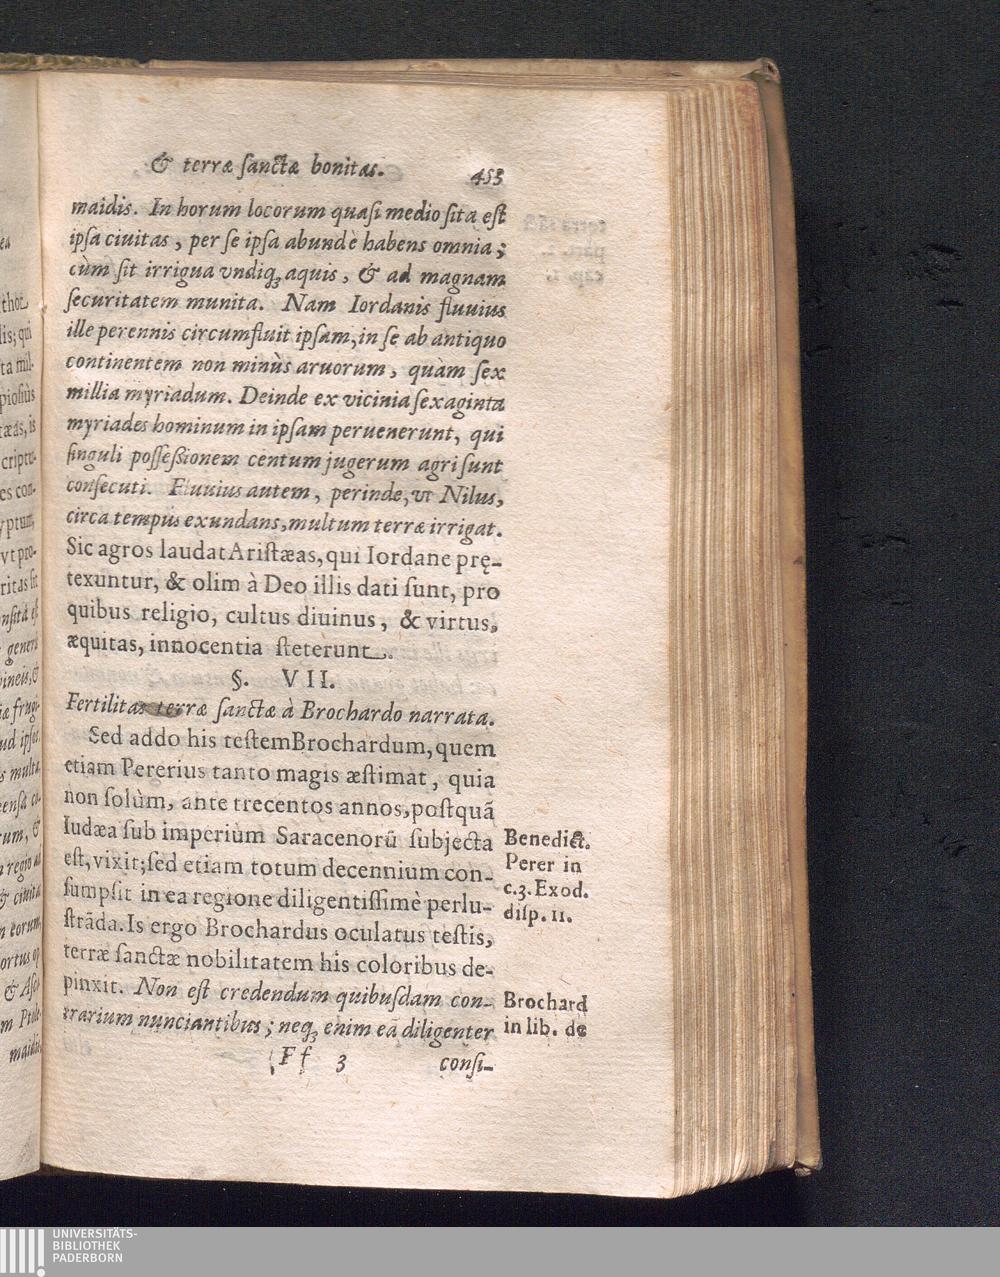 & terræ ſanctæ bonitas. 453
maidis. In horum locorum quaſi medio ſita eſt
ipſa ciuitas, per ſe ipſa abundè habens omnia;
cùm ſit irrigua vndiq; aquis, & ad magnam
ſecuritatem munita. Nam Iordanis fluuius
ille perennis circumfluit ipſam, in ſe ab antiquo
continentem non minùs aruorum, quàm ſex
millia myriadum. Deinde ex vicinia ſexaginta
myriades hominum in ipſam peruenerunt, qui
ſinguli poſſeßionem centum jugerum agri ſunt
conſecuti. Fluuius autem, perinde, vt Nilus,
circa tempus exundans, multum terræ irrigat.
Sic agros laudat Ariſtæas, qui Iordane prę-
texuntur, & olim à Deo illis dati ſunt, pro
quibus religio, cultus diuinus, & virtus,
æquitas, innocentia ſteterunt.
§. VII.
Fertilitas terræ ſanctæ à Brochardo narrata.
Sed addo his teſtem Brochardum, quem
etiam Pererius tanto magis æſtimat, quia
non ſolùm, ante trecentos annos, poſtquā
Iudæa ſub imperium Saracenorū ſubjecta
eſt, vixit; ſed etiam totum decennium con-
ſumpſit in ea regione diligentiſſimè perlu-
ſtrāda. Is ergo Brochardus oculatus teſtis,
terræ ſanctæ nobilitatem his coloribus de-
pinxit. Non eſt credendum quibuſdam con-
trarium nunciantibus; neq; enim eā diligenter
Ff 3 conſi-
Benedict.
Perer in
c.3. Exod.
diſp. 11.
Brochard
in lib. de
UNIVERSITÄTS-
BIBLIOTHEK
PADERBORN